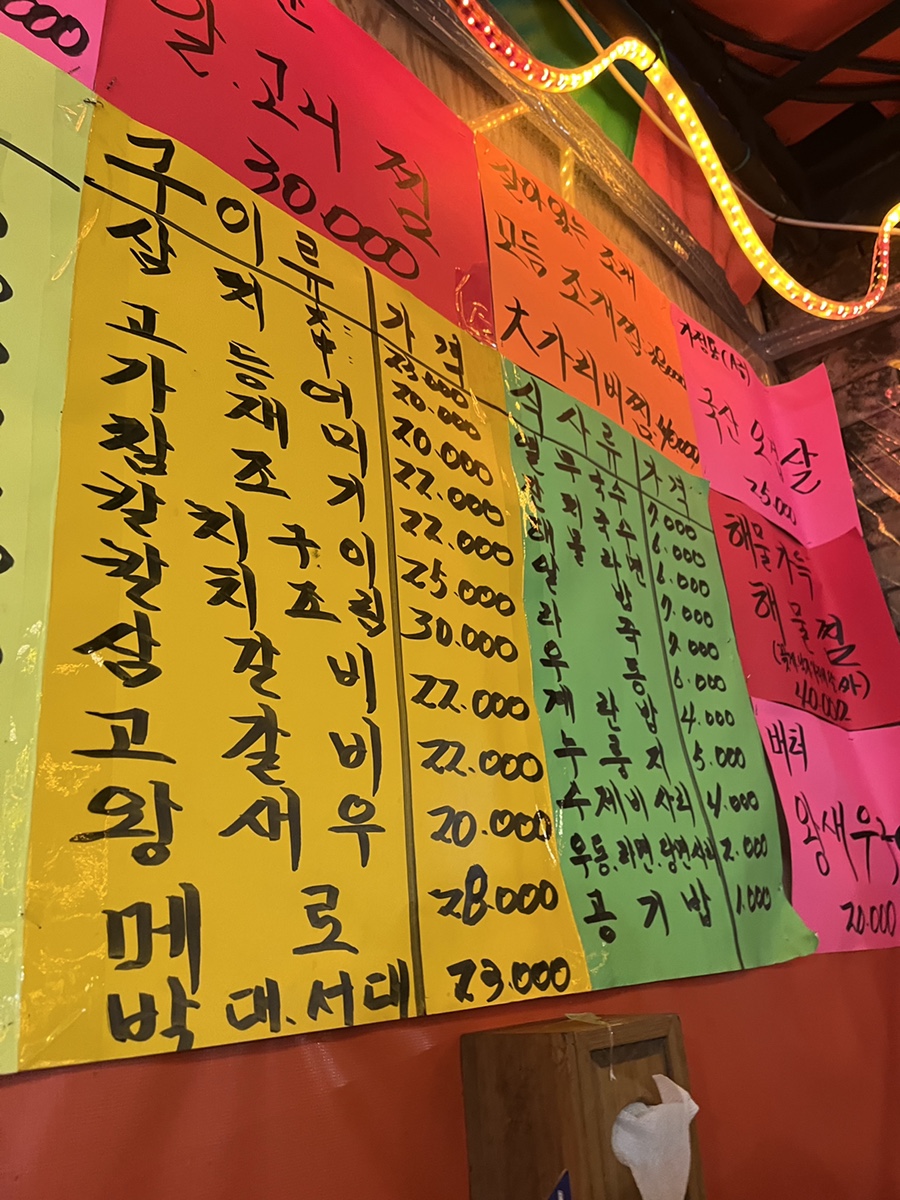 알.고니 찜
30.000
구이류 가격
삼치 中 23.000 20.000
고등어 20.000
가재미 22.000
참조기 22.000
칼치구이 25.000
칼치조림 30.000
삼갈비 22.000
고갈비 22.000
왕새우 20.000
메로 28.000
박대.서대 23.000
살아있는 조개
모듬 조개찜
大가리비찜 40.000
식사류 가격
열무국수 7.000
잔치국수 6.000
해물라면 6.000
알밥 7.000
죽 7.000
우동 6.000
계란밥 4.000
누룽지 5.000
수제비사리 4.000
우동.라면.당면사리 2.000
공기밥 1.000
국산 오겹살
25.000
해물가득
해물찜
40.000
버터
왕새우
20.000